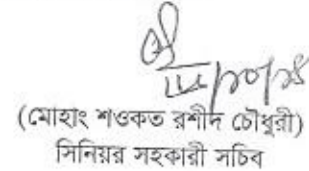 (মোহাং শওকত রশীদ চৌধুরী)
সিনিয়র সহকারী সচিব